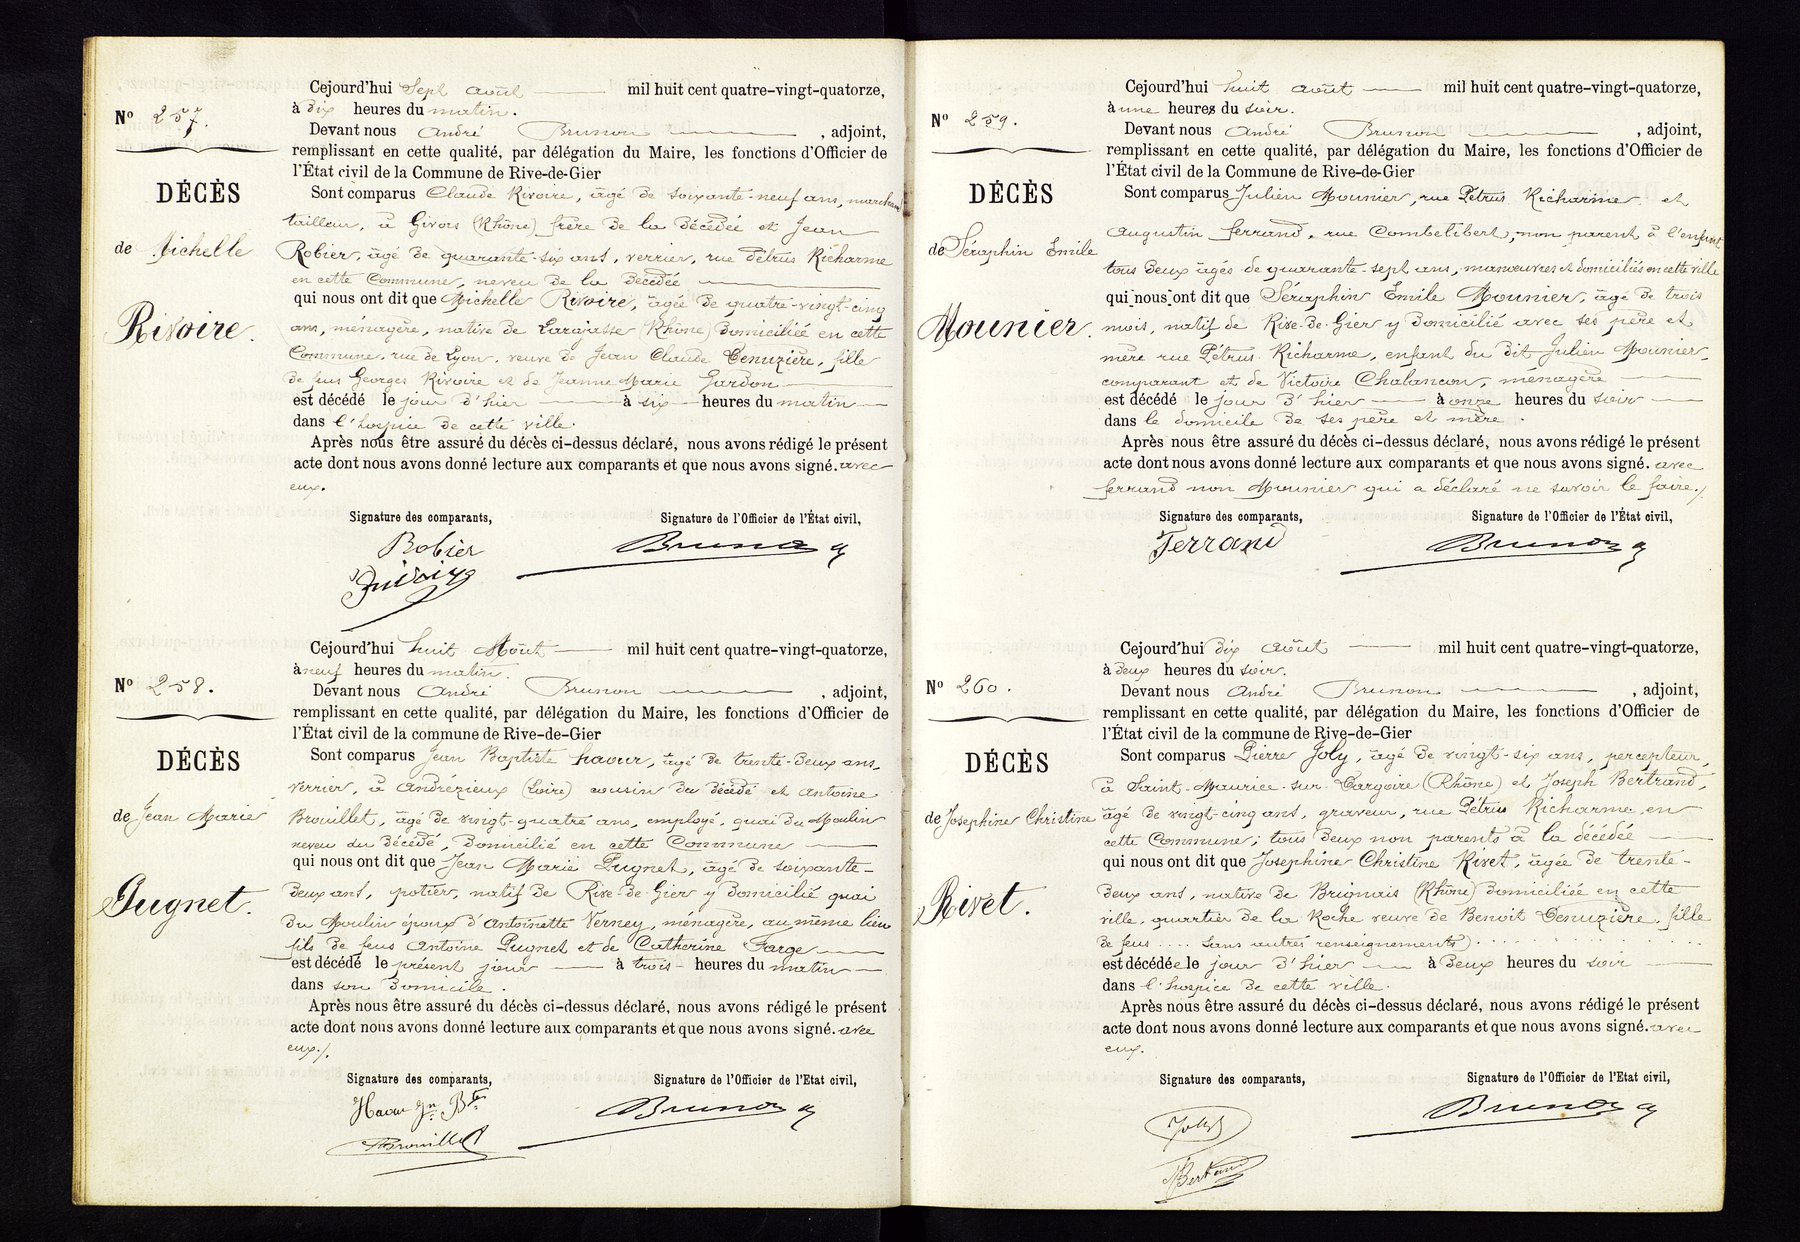 Nº 257.
DÉCÈS
de Michelle
Rivoire.
Cejourd'hui Sept août mil huit cent quatre-vingt-quatorze,
à dix heures du matin.
Devant nous André Brunon, adjoint,
remplissant en cette qualité, par délégation du Maire, les fonctions d'Officier de
l'État civil de la Commune de Rive-de-Gier
Sont comparus Claude Rivoire, âgé de soixante-neuf ans, marchand
tailleur, à Givors (Rhône) frère de la décédée et Jean
Robier, âgé de quarante-six ans, verrier, rue Pétrus Richarme
en cette Commune, neveu de la décédée
qui nous ont dit que Michelle Rivoire, âgée de quatre-vingt-cinq
ans, ménagère, native de Larajasse (Rhône) domiciliée en cette
Commune, rue de Lyon, veuve de Jean Claude Venuzière, fille
de feus Georges Rivoire et de Jeanne Marie Gardon
est décédé le jour d'hier à six heures du matin
dans l'hospice de cette ville.
Après nous être assuré du décès ci-dessus déclaré, nous avons rédigé le présent
acte dont nous avons donné lecture aux comparants et que nous avons signé. avec
eux.
Signature des comparants, Signature de l'Officier de l'État civil,
Robier Brunon
Rivoire
Nº 258.
DÉCÈS
de Jean Marie
Pugnet.
Cejourd'hui huit Août mil huit cent quatre-vingt-quatorze,
à neuf heures du matin.
Devant nous André Brunon, adjoint,
remplissant en cette qualité, par délégation du Maire, les fonctions d'Officier de
l'État civil de la commune de Rive-de-Gier
Sont comparus Jean Baptiste havur, âgé de trente-deux ans,
verrier, à Andrézieux (Loire) cousin du décédé et Antoine
Brouillet, âgé de vingt-quatre ans, employé, quai du Moulin
neveu du décédé, domicilié en cette Commune
qui nous ont dit que Jean Marie Pugnet, âgé de soixante-
deux ans, potier, natif de Rive-de-Gier y domicilié quai
du Moulin époux d'Antoinette Verney, ménagère, au même lieu
fils de feus Antoine Pugnet et de Catherine Farge
est décédé le présent jour à trois heures du matin
dans son domicile.
Après nous être assuré du décès ci-dessus déclaré, nous avons rédigé le présent
acte dont nous avons donné lecture aux comparants et que nous avons signé. avec
eux./.
Signature des comparants, Signature de l'Officier de l'Etat civil,
Havur Jn Bte Brunon
Brouillet
Nº 259.
DÉCÈS
de Séraphin Emile
Mounier.
Cejourd'hui huit août mil huit cent quatre-vingt-quatorze,
à une heures du soir.
Devant nous André Brunon, adjoint,
remplissant en cette qualité, par délégation du Maire, les fonctions d'Officier de
l'État civil de la Commune de Rive-de-Gier
Sont comparus Julien Mounier, rue Pétrus Richarme et
Augustin ferrand, rue Combelibert, non parent à l'enfant
tous deux âgés de quarante-sept ans, manœuvres et domiciliés en cette ville
qui nous ont dit que Séraphin Emile Mounier, âgé de trois
mois, natif de Rive-de-Gier y domicilié avec ses père et
mère rue Pétrus Richarme, enfant du dit Julien Mounier
comparant et de Victoire Chalancon, ménagère
est décédé le jour d'hier à onze heures du soir
dans le domicile de ses père et mère.
Après nous être assuré du décès ci-dessus déclaré, nous avons rédigé le présent
acte dont nous avons donné lecture aux comparants et que nous avons signé. avec
ferrand non Mounier qui a déclaré ne savoir le faire./.
Signature des comparants, Signature de l'Officier de l'État civil,
Ferrand Brunon
Nº 260.
DÉCÈS
de Josephine Christine
Rivet.
Cejourd'hui dix août mil huit cent quatre-vingt-quatorze,
à deux heures du soir.
Devant nous André Brunon, adjoint,
remplissant en cette qualité, par délégation du Maire, les fonctions d'Officier de
l'État civil de la commune de Rive-de-Gier
Sont comparus Pierre Joly, âgé de vingt-six ans, percepteur,
à Saint-Maurice-sur-Dargoire (Rhône) et Joseph Bertrand,
âgé de vingt-cinq ans, graveur, rue Pétrus Richarme en
cette Commune; tous deux non parents à la décédée
qui nous ont dit que Josephine Christine Rivet, âgée de trente-
deux ans, native de Brignais (Rhône) domiciliée en cette
ville, quartier de la Roche veuve de Benoit Venuzière, fille
de feus .... sans autres renseignements)
est décédée le jour d'hier à deux heures du soir
dans l'hospice de cette ville.
Après nous être assuré du décès ci-dessus déclaré, nous avons rédigé le présent
acte dont nous avons donné lecture aux comparants et que nous avons signé. avec
eux.
Signature des comparants, Signature de l'Officier de l'Etat civil,
Joly Brunon
Bertrand